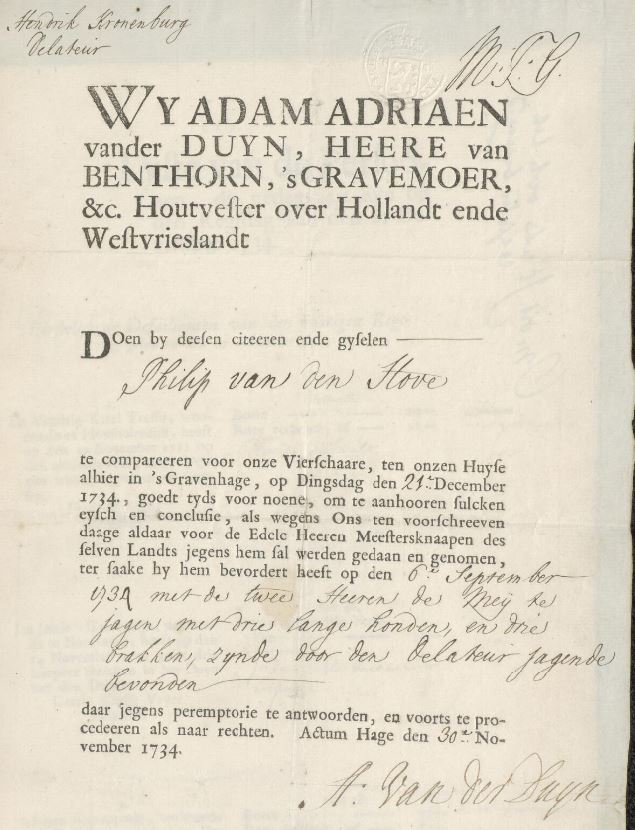 Hendrik Kronenburg
Delateur
M: T: G.
WY ADAM ADRIAEN
vander DUYN, HEERE van
BENTHORN, 'sGRAVEMOER,
&c. Houtveſter over Hollandt ende
Weſtvrieslandt
DOen by deeſen citeeren ende gyſelen
Philip van den Hove
te compareeren voor onze Vierſchaare, ten onzen Huyſe
alhier in 's Gravenhage, op Dingsdag den 21.e December
1734., goedt tyds voor noene, om te aanhooren ſulcken
eyſch en concluſie, als wegens Ons ten voorſchreeven
daage aldaar voor de Edele Heeren Meeſtersknaapen des
ſelven Landts jegens hem ſal werden gedaan en genomen,
ter ſaake hy hem bevordert heeft op den 6.e September
1734 met de twee Heeren de Meij te
jagen met drie lange honden, en drie
brakken, zynde door den Delateur jagende
bevonden
daar jegens peremptorie te antwoorden, en voorts te pro-
cedeeren als naar rechten. Actum Hage den 30.e No-
vember 1734.
A: Van der Duyn